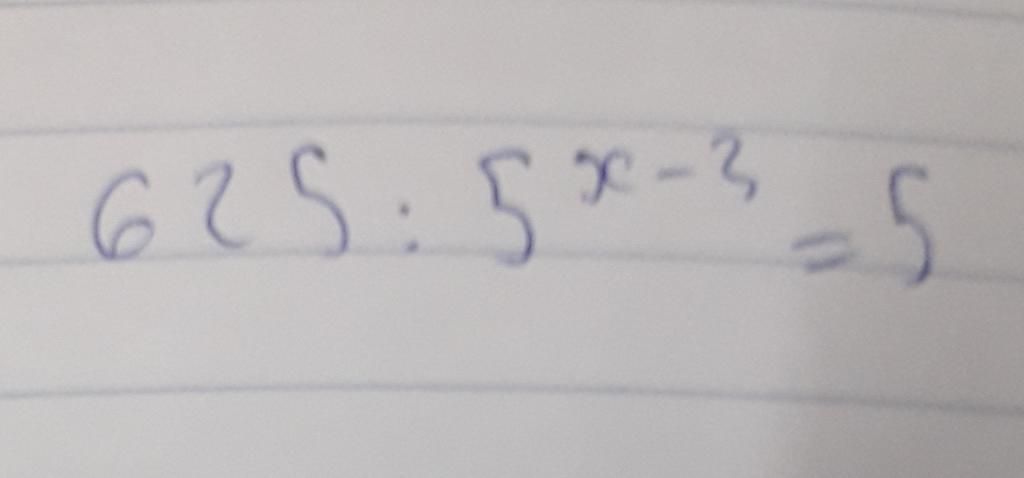 625 : 5^{x-3} = 5